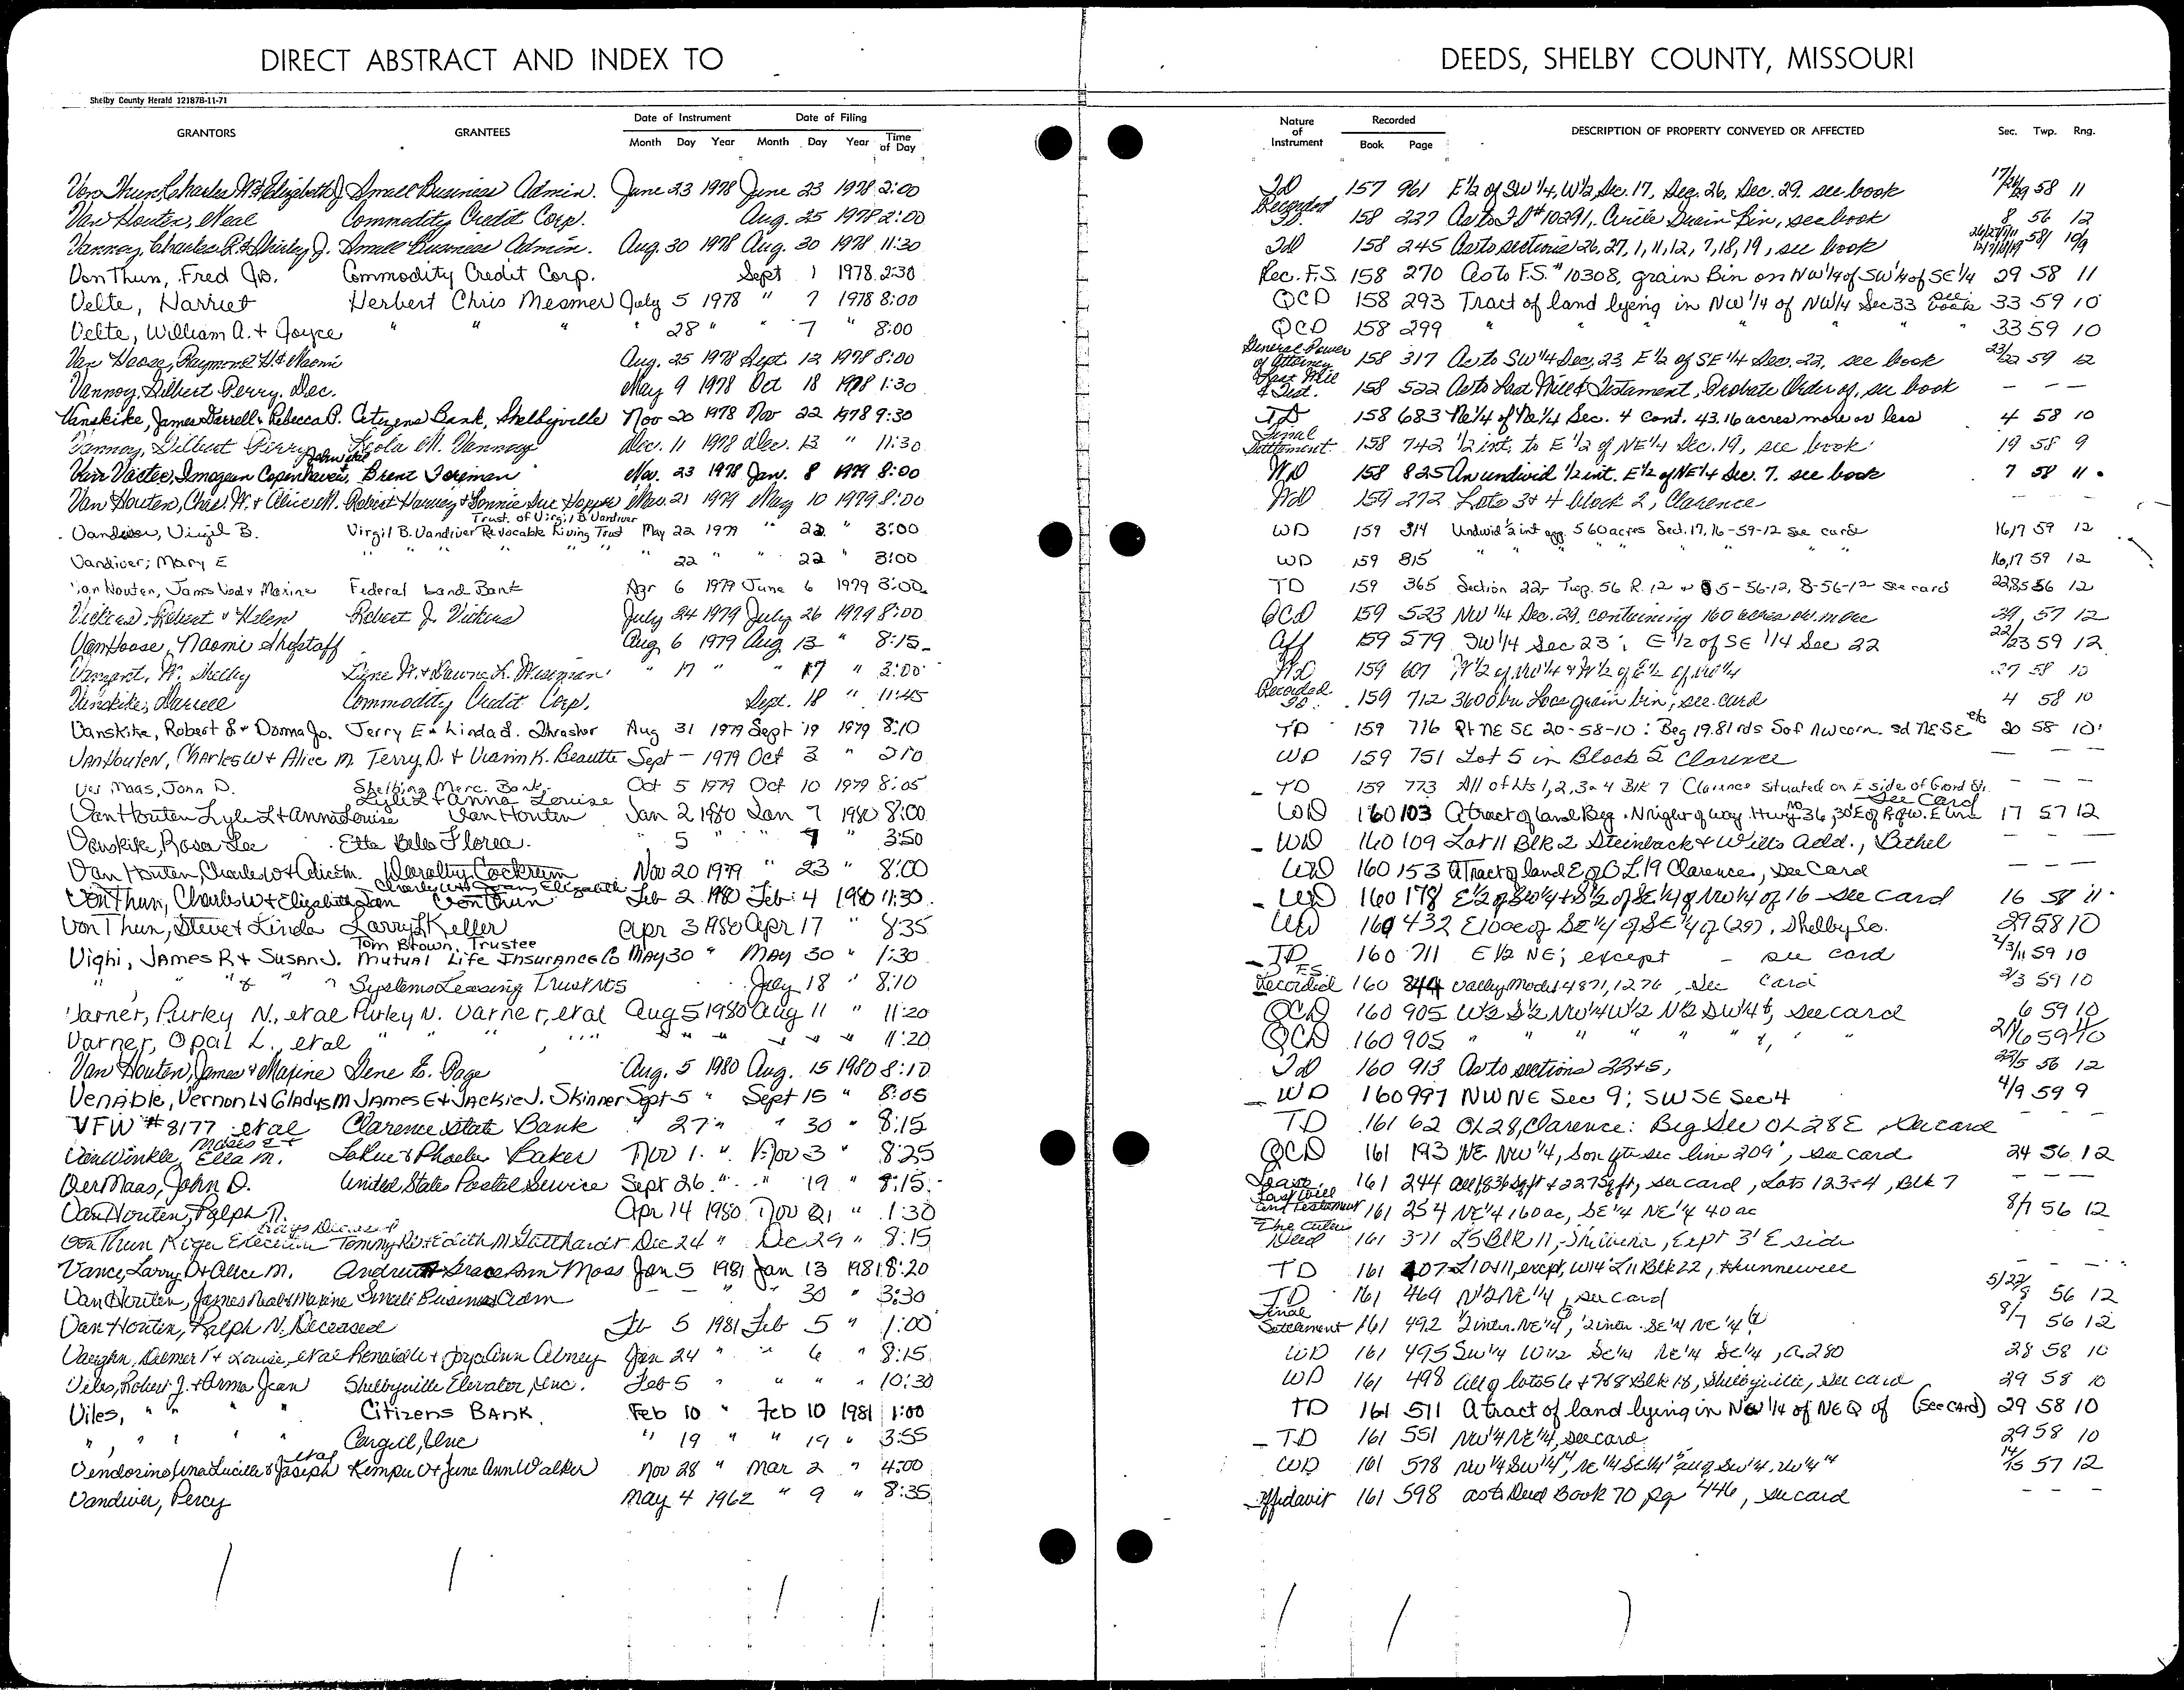 DIRECT ABSTRACT AND INDEX TO DEEDS, SHELBY COUNTY, MISSOURI
Shelby County Herald 121878-11-71
GRANTORS GRANTEES Date of Instrument Month Day Year Date of Filing Month Day Year Time of Day Nature of Instrument Recorded Book Page DESCRIPTION OF PROPERTY CONVEYED OR AFFECTED Sec. Twp. Rng.
Von Thun, Charles W. & Elizabeth J. Small Business Admin. June 23 1978 June 23 1978 2:00 TD 157 961 E½ of SW¼, W½, Sec. 17, Sec. 26, Sec. 29. see book 17/26/29 58 11
Van Houten, Neal Commodity Credit Corp. Aug. 25 1978 2:00 Recorded 158 237 As to #10291, Circle Drain Bin, see book 8 56 12
Vannoy, Charles R. & Shirley J. Small Business Admin. Aug. 30 1978 Aug. 30 1978 11:30 TD 158 245 As to sections 26, 27, 1, 11, 12, 7, 18, 19, see book 58 10/9
Von Thun, Fred Jr. Commodity Credit Corp. Sept 1 1978 2:30 Rec. F.S. 158 270 As to F.S. #10308, grain Bin on NW¼ of SW¼ of SE¼ 29 58 11
Velte, Harriet Herbert Chris Mesmer July 5 1978 " 7 1978 8:00 QCD 158 293 Tract of land lying in NW¼ of NW¼ Sec 33 see book 33 59 10
Velte, William A. + Joyce " " " " 28 " " 7 " 8:00 QCD 158 299 " " " " " 33 59 10
Van Hoose, Raymond H. & Naomi Aug. 25 1978 Sept. 12 1978 8:00 General Power of Attorney 158 317 As to SW¼ Sec. 23, E½ of SE¼ Sec. 22, see book 23/22 59 12
Vannoy, Gilbert Perry, Dec. May 9 1978 Oct 18 1978 1:30 Last Will & Test. 158 522 As to Last Will & Testament, Probate Order of, see book – – –
Vanskike, James Darrell & Rebecca P. Citizens Bank, Shelbyville Nov 20 1978 Nov 22 1978 9:30 TD 158 683 Ne¼ of Ne¼ Sec. 4 cont. 43.16 acres more or less 4 58 10
Vannoy, Gilbert Perry Leola M. Vannoy Dec. 11 1978 Dec. 13 " 11:30 Final Settlement 158 742 ½ int. to E½ of NE¼ Sec. 19, see book 19 58 9
Van Vacter, Imogean Copenhaver, Brent Foreman Nov. 23 1978 Jan. 8 1979 8:00 WD 158 825 An undivid ½ int. E½ of NE¼ Sec. 7. see book 7 58 11
Van Houten, Chas. W. + Alice M. Robert Harvey & Bonnie Sue Hopper Mar. 21 1979 May 10 1979 8:00 WD 159 272 Lots 3 + 4 Block 2, Clarence – – –
Vandiver, Virgil B. Virgil B. Vandiver Revocable Living Trust Trust. of Virgil B Vandiver May 22 1979 " 22 " 3:00 WD 159 314 Undivid ½ int agg. 560 acres Sec. 17, 16-59-12 see card 16/17 59 12
Vandiver, Mary E " " " " 22 " " 22 " 3:00 WD 159 315 " " " " 16,17 59 12
Van Houten, James Neal & Maxine Federal Land Bank Apr 6 1979 June 6 1979 3:00 TD 159 365 Section 22- Twp. 56 R. 12 + 5-56-12, 8-56-12 see card 22,8,5 56 12
Vickers, Robert & Helen Robert J. Vickers July 24 1979 July 26 1979 8:00 QCD 159 523 NW¼ Sec. 29, containing 160 acres 29 57 12
Van Hoose, Naomi Shofstaff Aug 6 1979 Aug 13 " 8:15 Aff 159 579 SW¼ Sec 23; E½ of SE¼ Sec 22 22/23 59 12
W. Shelby " 17 " " 17 " 3:00 WD 159 607 W½ of NW¼ & W½ of E½ of NW¼ 27 58 10
Vanskike, Darrell Commodity Credit Corp. Sept. 18 " 11:45 Recorded 159 712 3600 bu grain bin, see card 4 58 10
Vanskike, Robert S + Donna Jo. Jerry E + Linda S. Thrasher Aug 31 1979 Sept 19 1979 8:10 TD 159 716 Pt NE SE 20-58-10: Beg 19.81 rds S of NW corn. sd NE SE etc 20 58 10
VanHouten, Charles W + Alice M. Terry D. + Vearin K. Beautte Sept – 1979 Oct 3 " 210 WD 159 751 Lot 5 in Block 2 Clarence – – –
Ver Maas, John D. Shelbina Merc. Bank Oct 5 1979 Oct 10 1979 8:05 TD 159 773 All of Lts 1, 2, 3 & 4 Blk 7 Clarence situated on E side of Grand St. – – –
Van Houten Lyle L + Anna Louise Lyle L + Anna Louise Van Houten Jan 2 1980 Jan 7 1980 8:00 WD 160 103 A tract of land Beg. N right of way Hwy no. 36, 30' E of R of W. E line See Card 17 57 12
Vanskike, Rosa Lee Etta Belle Florea " 5 " " 7 " 3:50 WD 160 109 Lot 11 Blk 2 Steinback & Wills Add., Bethel – – –
Van Houten, Charles W & Alice M. Dorothy Cockrum Nov 20 1979 " 23 " 8:00 WD 160 153 A Tract of land E of OL 19 Clarence, See Card – – –
Von Thun, Charles W & Elizabeth Jean Charles W & Jean, Elizabeth Von Thun Feb 2 1980 Feb 4 1980 11:30 WD 160 178 E½ of SW¼ + S½ of SE¼ of NW¼ of 16 see card 16 58 11
Von Thun, Steve & Linda Larry L Keller Apr 3 1980 Apr 17 " 8:35 WD 160 432 E 10 ac of SE¼ of SE¼ of (29), Shelby Co. 29 58 10
Vighi, James R + Susan J. Tom Brown, Trustee Mutual Life Insurance Co May 30 " May 30 " 1:30 TD 160 711 E½ NE; except – see card 2/3/11 59 10
" " & " " Systems Leasing Trust July 18 " 8:10 F.S. Recorded 160 844 Valley Model 4871, 1276, see Card 2/3 59 10
Varner, Purley N., et al Purley N. Varner, et al Aug 5 1980 Aug 11 " 11:20 QCD 160 905 W½ S½ NW¼ W½ N½ SW¼ &, see card 6 59 10
Varner, Opal L., et al " " " " " " " 11:20 QCD 160 905 " " " " " " 59
Van Houten, James & Maxine Gene E. Page Aug. 5 1980 Aug. 15 1980 8:10 TD 160 913 As to sections 22 + 5, 22/5 56 12
Venable, Vernon L & Gladys M James E + Jackie J. Skinner Sept 5 " Sept 15 " 8:05 WD 160 997 NW NE Sec 9; SW SE Sec 4 4/9 59 9
VFW #8177 et al Clarence State Bank " 27 " " 30 " 8:15 TD 161 62 OL 28, Clarence: Beg OL 28 E, See card – – –
Van Winkle, Moses E + Ella M. LaRue & Phoebe Baker Nov 1 " Nov 3 " 8:25 QCD 161 193 NE NW¼, line 209', see card 24 56 12
Ver Maas, John D. United States Postal Service Sept 26 " " 19 " 8:15 Lease 161 244 see card, Lots 1 2 3 + 4, Blk 7 – – –
Van Houten, Ralph N. Apr 14 1980 Nov 21 " 1:30 Last Will and Testament 161 254 NE¼ 160 ac, SE¼ NE¼ 40 ac 8/7 56 12
Von Thun Roger Executor Deceased Tommy Ray & Edith M Gatthardt Dec 24 " Dec 29 " 8:15 Deed 161 371 L5 Blk 11, Ecpt 3' E side
Vance, Larry D & Alice M. Andrew & Grace Ann Moss Jan 5 1981 Jan 13 1981 8:20 TD 161 407 L 10 + 11, except W14' L11 Blk 22, Hunnewell – – –
Van Houten, James Neal & Maxine Small Business Adm – – " 30 " 3:30 TD 161 469 N½ NE¼, see card 5/22/8 56 12
Van Houten, Ralph N. Deceased Feb 5 1981 Feb 5 " 1:00 Final Settlement 161 492 ½ inter. NE¼, ½ inter. SE¼ NE¼ 8/7 56 12
Vaughn, Delmer V + Louise, et al Renaldle + Joyce Ann Abney Jan 24 " " 6 " 8:15 WD 161 495 SW¼ W½ SE¼ NE¼ SE¼, A 280 28 58 10
Viles, Robert J. + Orma Jean Shelbyville Elevator, Inc. Feb 5 " " " " 10:30 WD 161 498 All of lots 5 6 + 7 & 8 Blk 18, Shelbyville, See card 29 58 10
Viles, " " " " Citizens Bank Feb 10 " Feb 10 1981 1:00 TD 161 511 A tract of land lying in NW¼ of NEQ of (see card) 29 58 10
" , " " " " Cargill, Inc " 19 " " 19 " 3:55 TD 161 551 NW¼ NE¼, see card 29 58 10
Lucille & Joseph et al Kemper V + June Ann Walker Nov 28 " Mar 2 " 4:00 WD 161 578 NW¼ SW¼, NE¼ SE¼ 57 12
Vandiver, Percy May 4 1962 " 9 " 8:35 Affidavit 161 598 as to Deed Book 70 pg 446, see card – – –